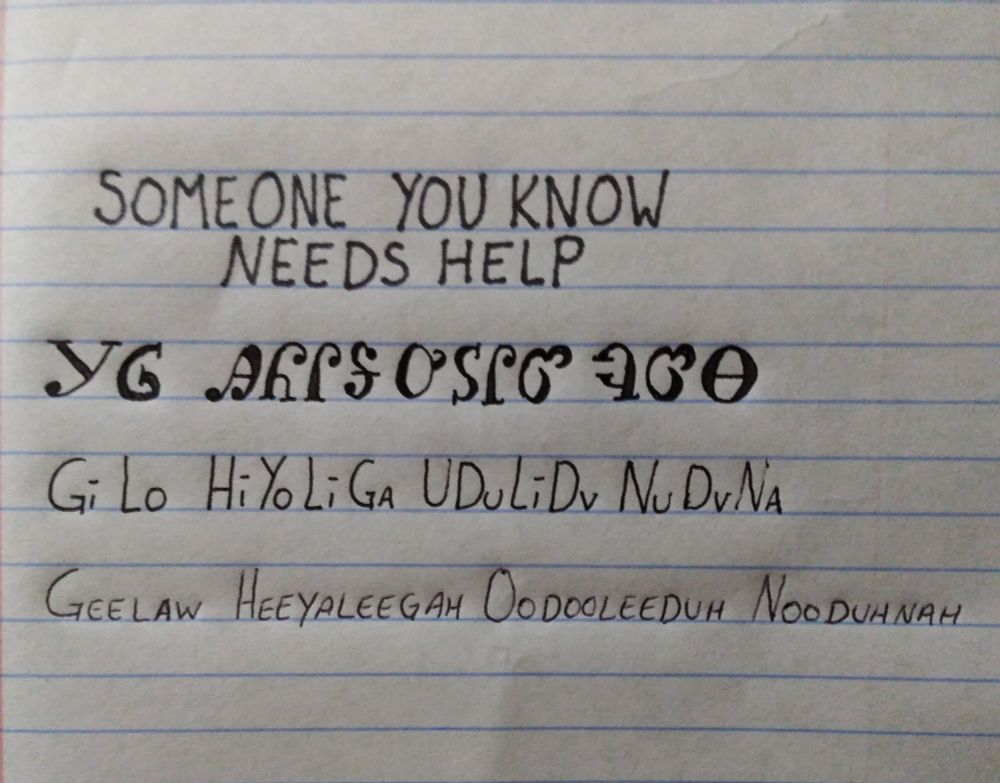 SOMEONE YOU KNOW
NEEDS HELP
ᎩᎶ ᎯᏲᎵᎦ ᎤᏚᎵᏛ ᏄᏛᎾ
Gi Lo HiYoLiGa UDuLiDv NuDvNa
GEELAW HEEYALEEGAH OODOOLEEDUH NOODUHNAH